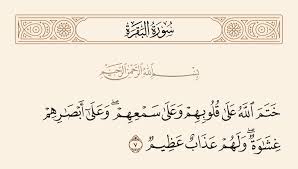 سُورَةُ الْبَقَرَةِ
بِسْمِ اللَّهِ الرَّحْمَٰنِ الرَّحِيمِ
خَتَمَ اللَّهُ عَلَىٰ قُلُوبِهِمْ وَعَلَىٰ سَمْعِهِمْ ۖ وَعَلَىٰ أَبْصَارِهِمْ
غِشَاوَةٌ ۖ وَلَهُمْ عَذَابٌ عَظِيمٌ ٧